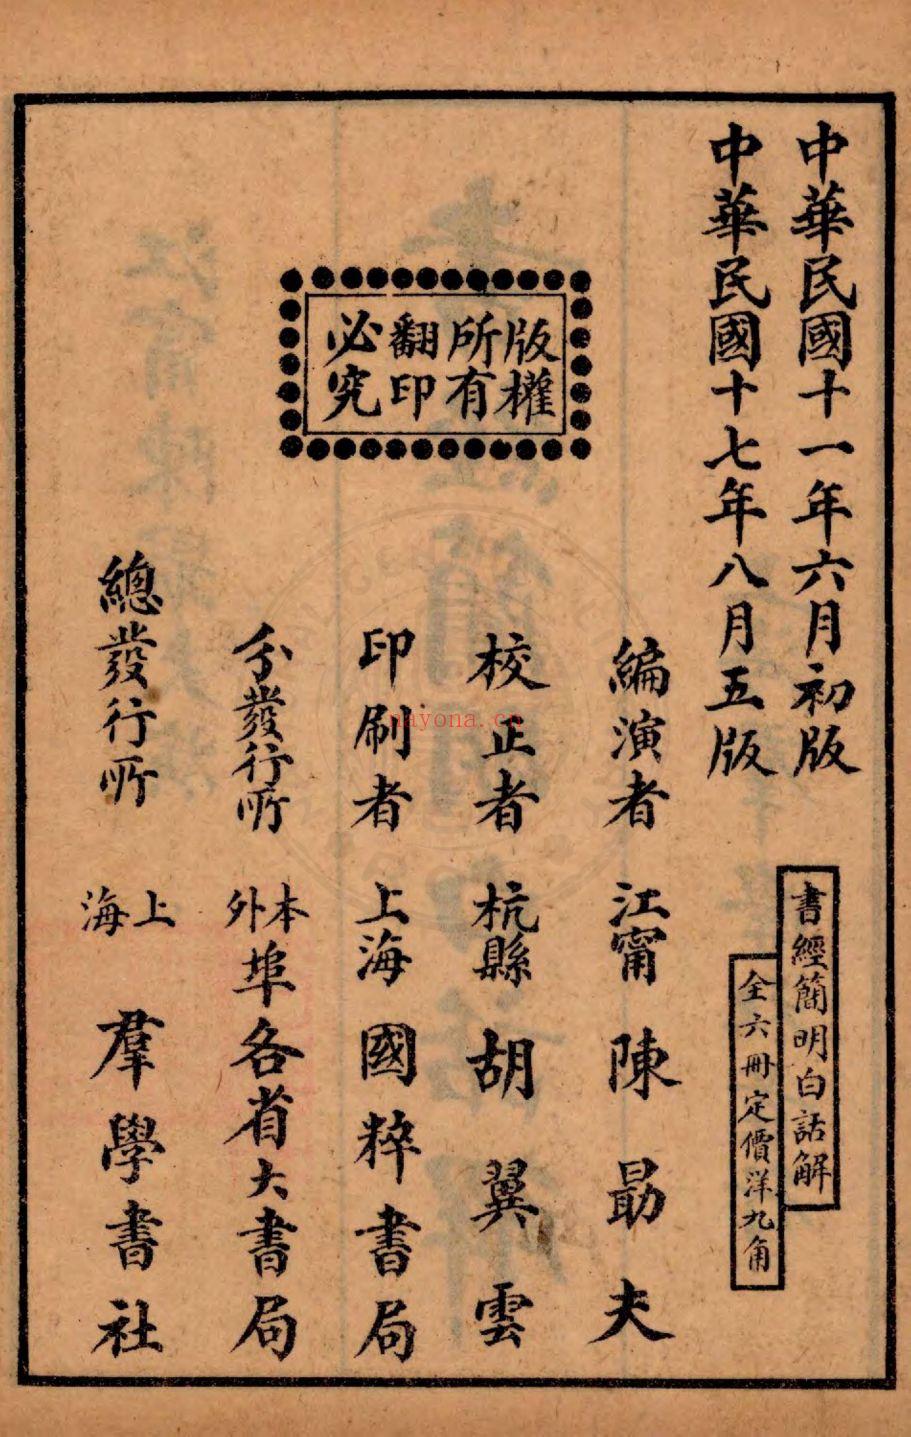 中華民國十一年六月初版
中華民國十七年八月五版
書經簡明白話解
全六冊定價洋九角
版權
所有
翻印
必究
編演者 江甯 陳勗夫
校正者 杭縣 胡翼雲
印刷者 上海 國粹書局
分發行所 本外埠各省大書局
總發行所 上海 羣學書社